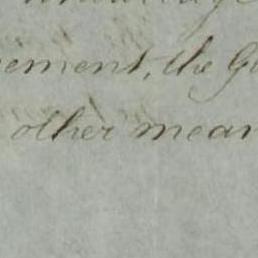 ement, the G
other mean